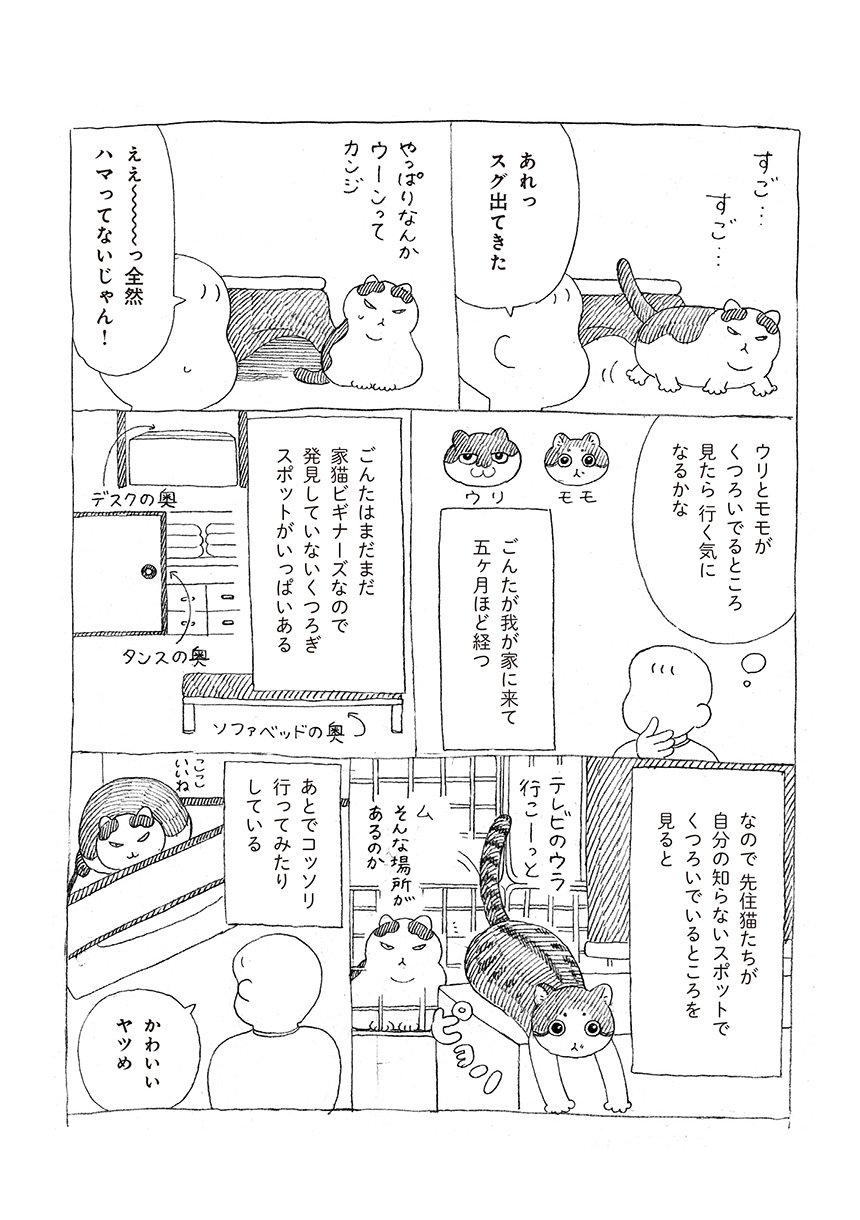 すご…
すご…
あれっ
スグ出てきた
やっぱりなんか
ウーンって
カンジ
ええ〜〜〜〜〜っ全然
ハマってないじゃん！
ウリとモモが
くつろいでるところ
見たら 行く気に
なるかな
モモ
ウリ
ごんたが我が家に来て
五ヶ月ほど経つ
ごんたはまだまだ
家猫ビギナーズなので
発見していないくつろぎ
スポットがいっぱいある
デスクの奥
タンスの奥
ソファベッドの奥
なので 先住猫たちが
自分の知らないスポットで
くつろいでいるところを
見ると
テレビのウラ
行こーっと
ピョーン
ム
そんな場所が
あるのか
あとでコッソリ
行ってみたり
している
ここ
いいね
かわいい
ヤツめ